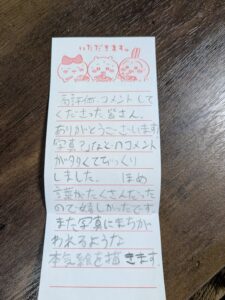 いただきます。
高評価、コメントして
くださった皆さん、
ありがとうございます
写真?などのコメント
が多くてびっくり
しました。 ほめ
言葉がたくさんだった
ので嬉しかったです
また写真にまちが
われるような
本気絵を描きます